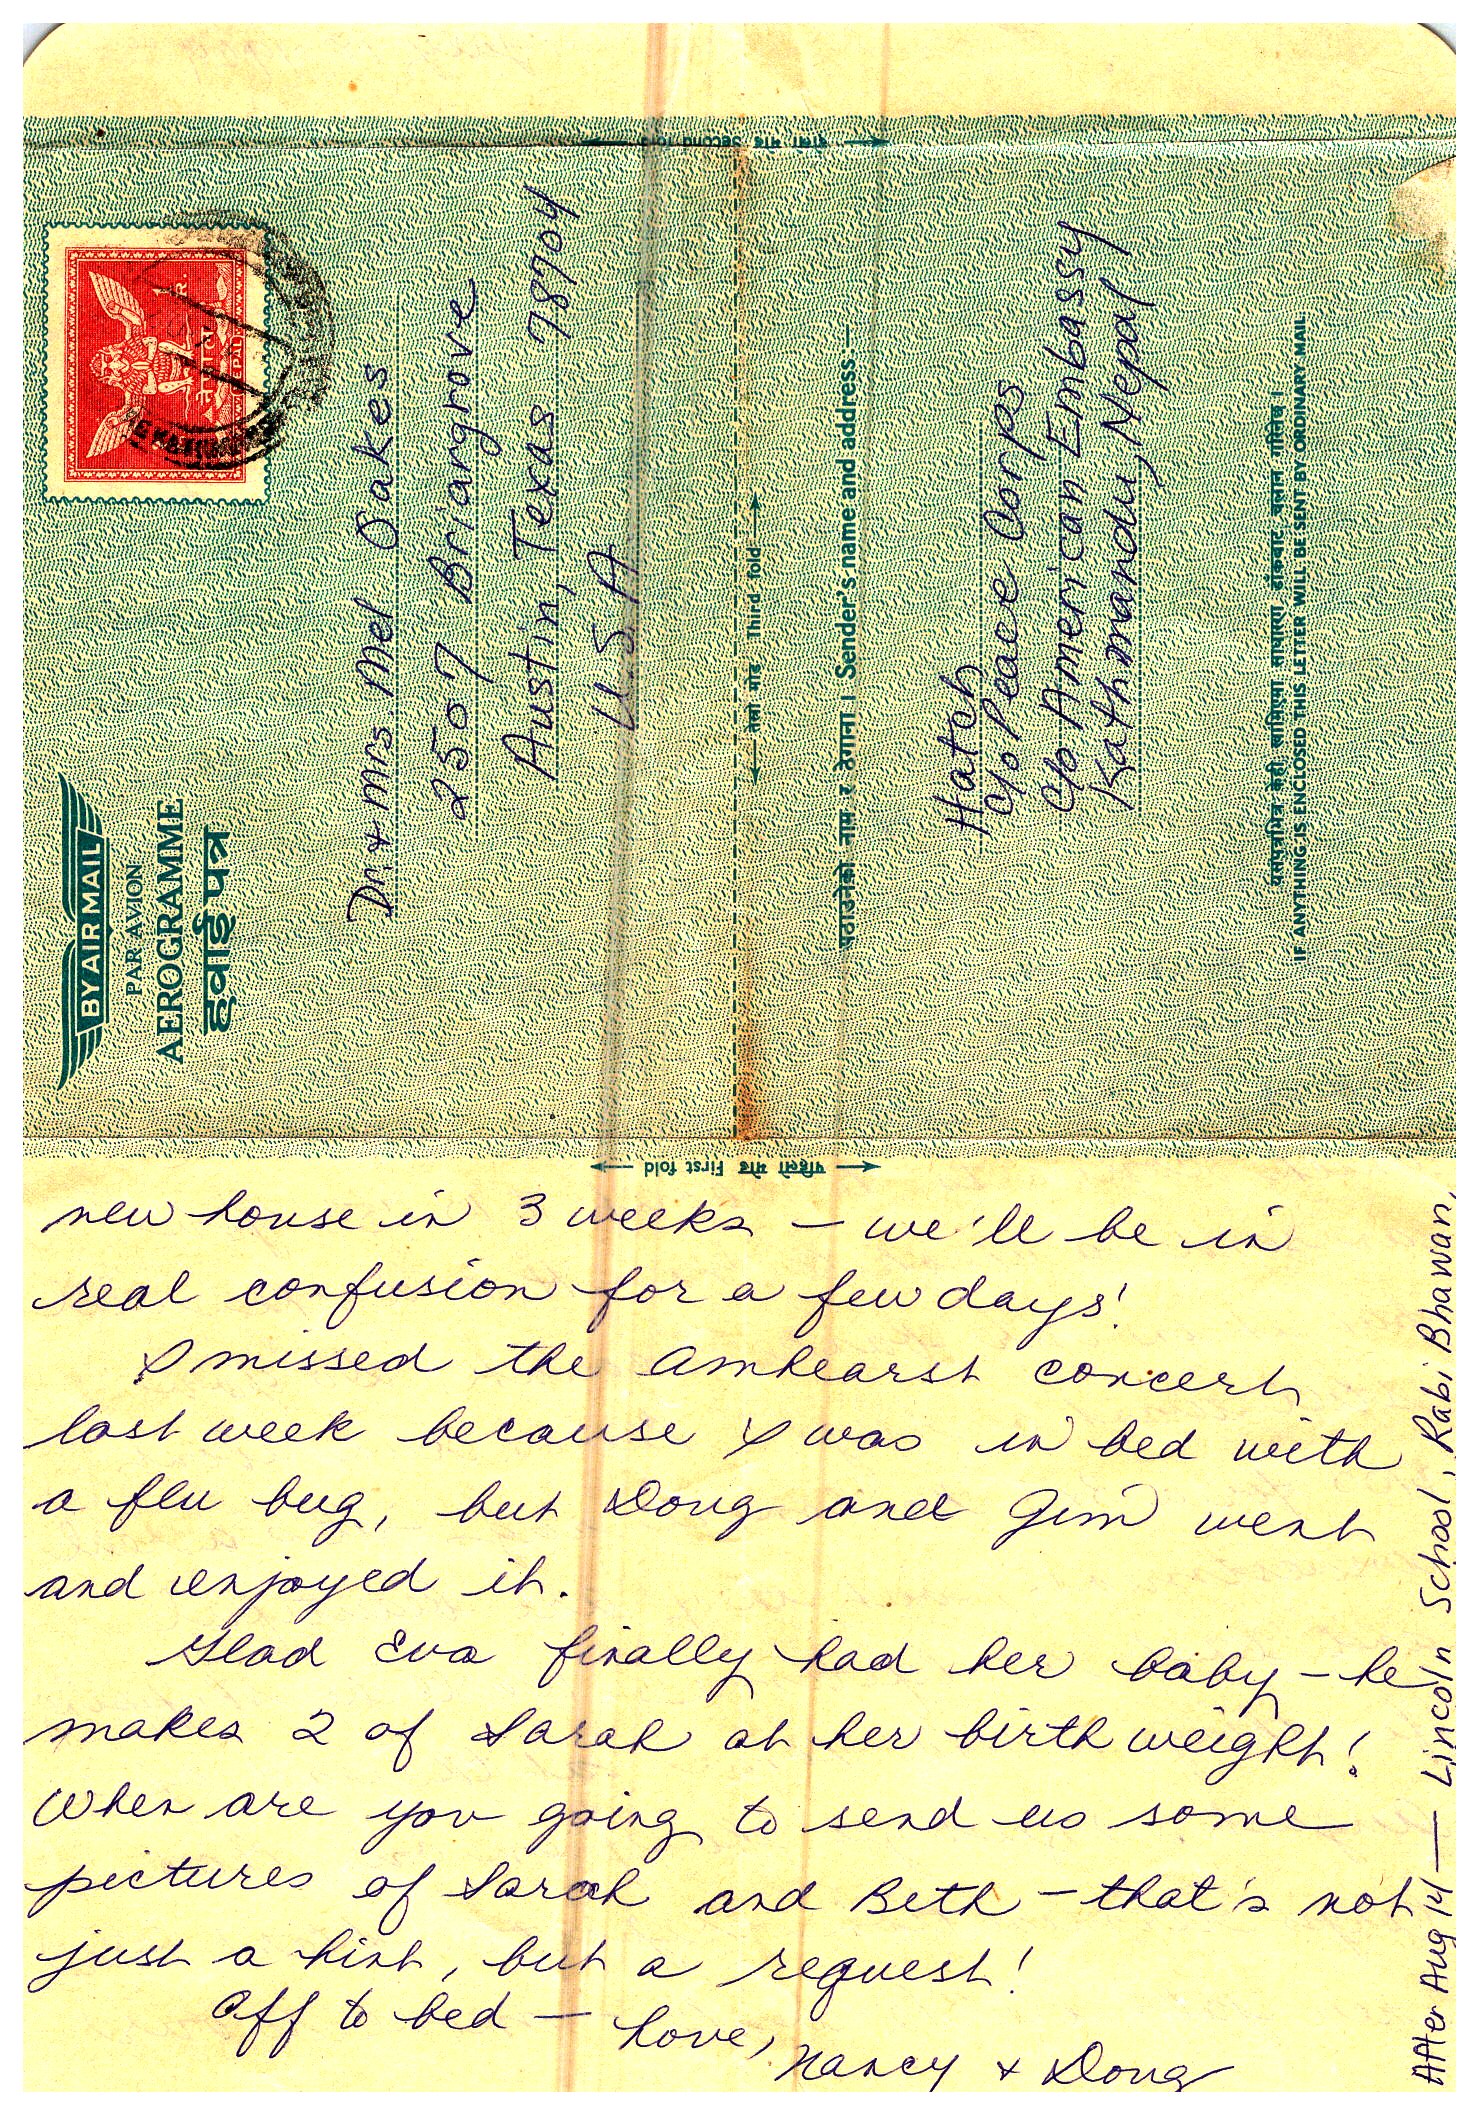 BY AIR MAIL
PAR AVION
AEROGRAMME
हवाई पत्र
नेपाल
NEPAL
1 R.
Dr. & Mrs. Mel Oakes
2507 Briangrove
Austin, Texas 78704
U.S.A
Second fold
तेस्रो मोड Third fold
पठाउनेको नाम र ठेगाना । Sender's name and address:—
Hatch
c/o Peace Corps
c/o American Embassy
Kathmandu, Nepal
यसपत्रभित्र केही खामिएमा साधारण डाँकबाट चलान गरिनेछ ।
IF ANYTHING IS ENCLOSED THIS LETTER WILL BE SENT BY ORDINARY MAIL
पहिलो मोड First fold
new house in 3 weeks — we'll be in
real confusion for a few days!
I missed the Amhearst concert
last week because I was in bed with
a flu bug, but Doug and Jim went
and enjoyed it.
Glad Eva finally had her baby – he
makes 2 of Sarah at her birth weight!
When are you going to send us some
pictures of Sarah and Beth – that's not
just a hint, but a request!
Off to bed — Love,
Nancy & Doug
After Aug 14 — Lincoln School, Rabi Bhawan,